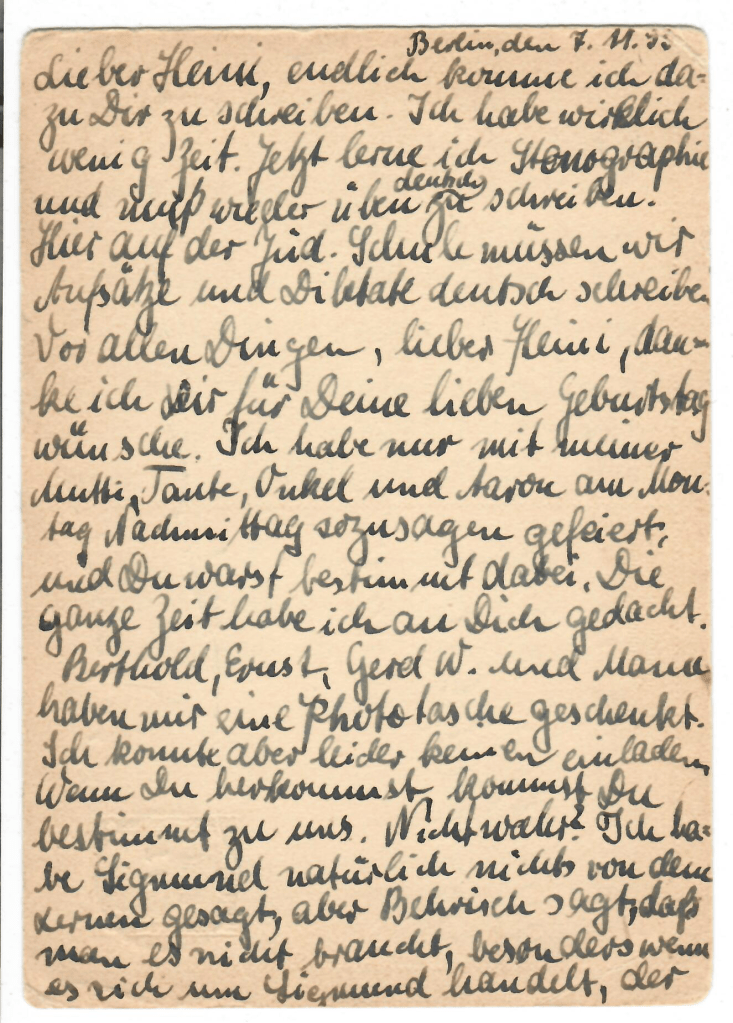 Berlin, den 7. 11. 35
Lieber Heini, endlich komme ich da=
zu Dir zu schreiben. Ich habe wirklich
wenig Zeit. Jetzt lerne ich Stenographie
und muß wieder üben deutsch zu schreiben.
Hier auf der Jüd. Schule müssen wir
Aufsätze und Diktate deutsch schreiben
Vor allen Dingen, lieber Heini, dan=
ke ich Dir für Deine lieben Geburtstag
wünsche. Ich habe nur mit meiner
Mutti, Tante, Onkel und Aaron am Mon-
tag Nachmittag sozusagen gefeiert,
und Du warst bestimmt dabei. Die
ganze Zeit habe ich an Dich gedacht.
Berthold, Ernst, Gerd W. und
haben mir eine Phototasche geschenkt.
Ich konnte aber leider keinen einladen,
Wenn Du herkommst kommst Du
bestimmt zu uns. Nicht wahr? Ich ha=
be Sigmund natürlich nichts von dem
Lernen gesagt, aber Behrisch sagt, daß
man es nicht braucht, besonders wenn
es sich um Sigmund handelt, der